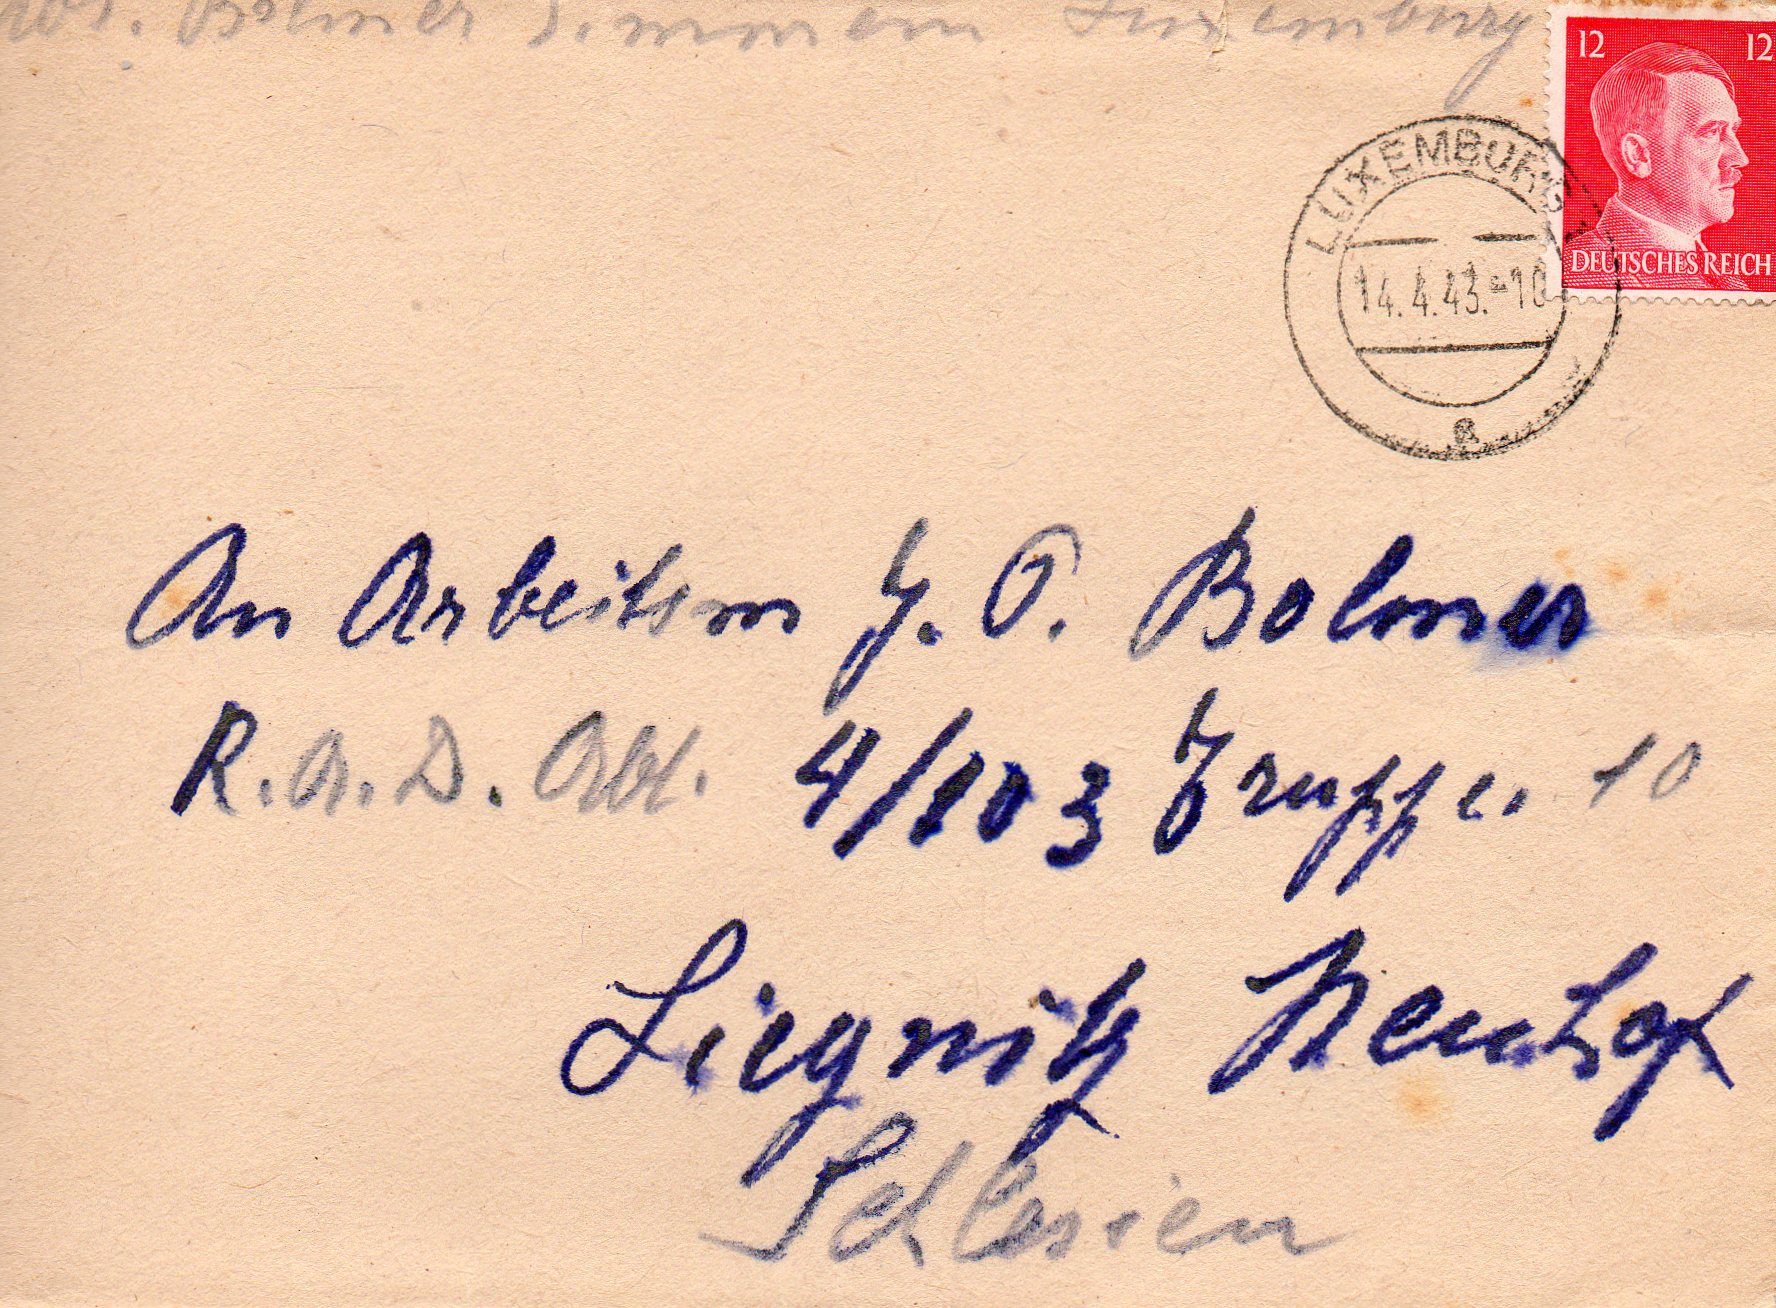 Abs. Bolmer Simmern Luxemburg
12 12
DEUTSCHES REICH
LUXEMBURG 1
14.4.43.-10
a
An Arbeitsm J. P. Bolmer
R.A.D. Abt. 4/103 Truppe. 10
Liegnitz Neuhof
Schlesien